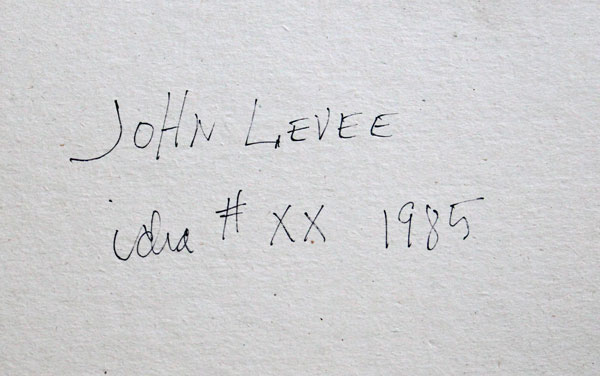 JOHN LEVEE
# XX 1985